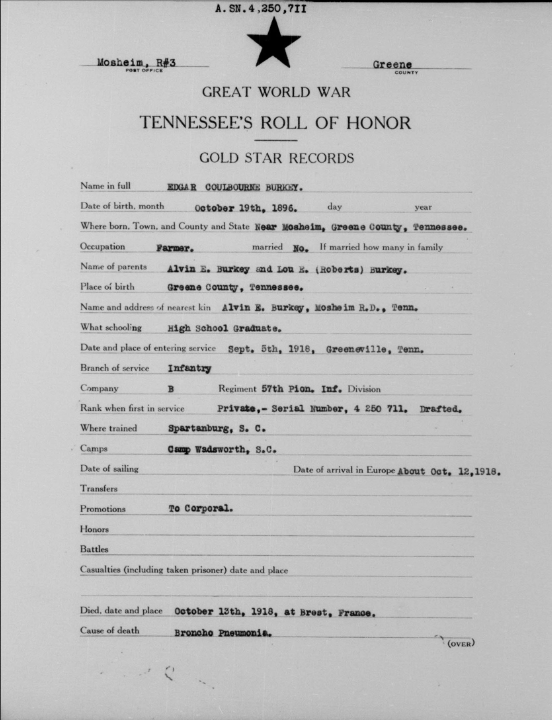 A.SN.4,250,7II
Mosheim, R#3 Greene
POST OFFICE COUNTY
GREAT WORLD WAR
TENNESSEE'S ROLL OF HONOR
GOLD STAR RECORDS
Name in full EDGAR COULBOURNE BURKEY.
Date of birth, month October 19th, 1896. day year
Where born, Town, and County and State Near Mosheim, Greene County, Tennessee.
Occupation Farmer. married No. If married how many in family
Name of parents Alvin E. Burkey and Lou E. (Roberts) Burkey.
Place of birth Greene County, Tennessee.
Name and address of nearest kin Alvin E. Burkey, Mosheim R.D., Tenn.
What schooling High School Graduate.
Date and place of entering service Sept. 5th, 1918, Greeneville, Tenn.
Branch of service Infantry
Company B Regiment 57th Pion. Inf. Division
Rank when first in service Private,- Serial Number, 4 250 711. Drafted.
Where trained Spartanburg, S. C.
Camps Camp Wadsworth, S.C.
Date of sailing Date of arrival in Europe About Oct. 12,1918.
Transfers
Promotions To Corporal.
Honors
Battles
Casualties (including taken prisoner) date and place
Died, date and place October 13th, 1918, at Brest, France.
Cause of death Broncho Pneumonia.
(OVER)